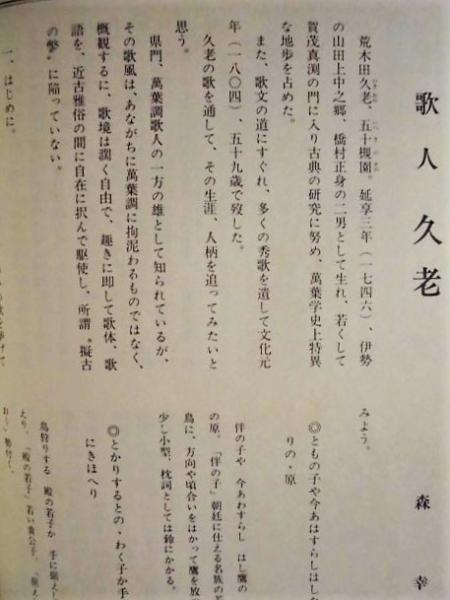 歌人久老
森 幸
荒木田久老、五十槻園。延享三年（一七四六）、伊勢
の山田上中之郷、橋村正身の二男として生れ、若くして
賀茂真渕の門に入り古典の研究に努め、萬葉学史上特異
な地歩を占めた。
また、歌文の道にすぐれ、多くの秀歌を遺して文化元
年（一八〇四）、五十九歳で歿した。
久老の歌を通して、その生涯、人柄を追ってみたいと
思う。
県門、萬葉調歌人の一方の雄として知られているが、
その歌風は、あながちに萬葉調に拘泥わるものではなく、
概観するに、歌境は濶く自由で、趣きに即して歌体、歌
語を、近古雅俗の間に自在に択んで駆使し、所謂〝擬古
の弊〟に陥っていない。
一、はじめに。
みよう。
◎ともの子や今あはすらしはした
りの、原
伴の子や 今あわすらし はし鷹の
の原。「伴の子」朝廷に仕える名族の
鳥に、方向や頃合いをはかって鷹を放
少し小型、枕詞としては鈴にかかる。
◎とかりするとの、わく子か手
にきほへり
鳥狩りする 殿の若子か 手に据えし
えり。「殿の若子」若い貴公子。